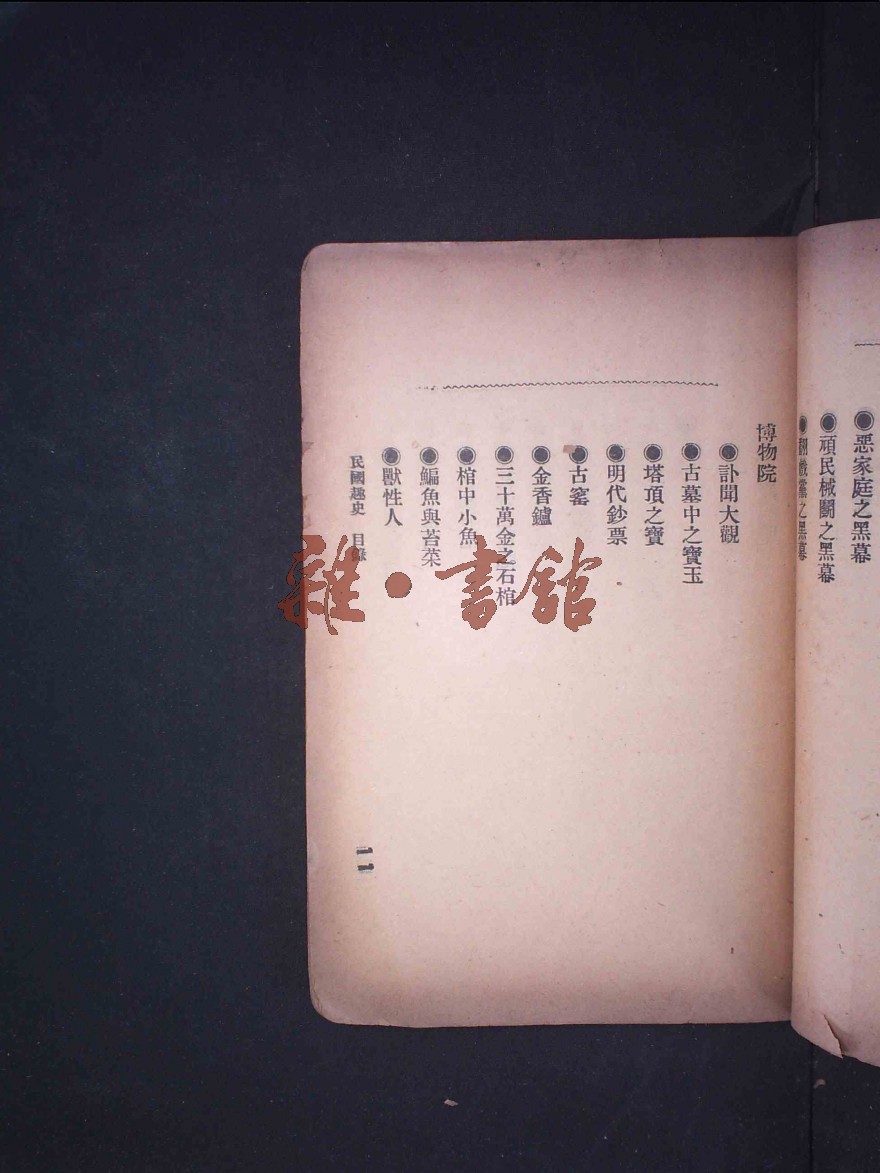 ●惡家庭之黑幕
●頑民械鬭之黑幕
黨之黑幕
博物院
●訃聞大觀
●古墓中之寶玉
●塔頂之寶
●明代鈔票
●古窰
●金香鑪
●三十萬金之石棺
●棺中小魚
●鯿魚與苔菜
●獸性人
民國趣史 目錄
一一
雜·書館